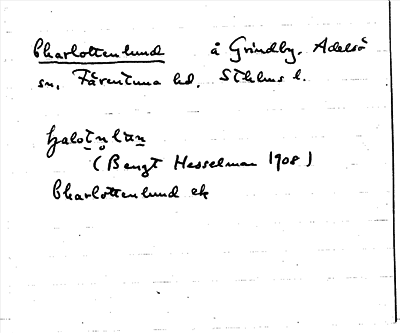 Charlottenlund å Grindby. Adelsö
sn, Färentuna hd, Sthlms l.
(Bengt Hesselman 1908)
Charlottenlund ek